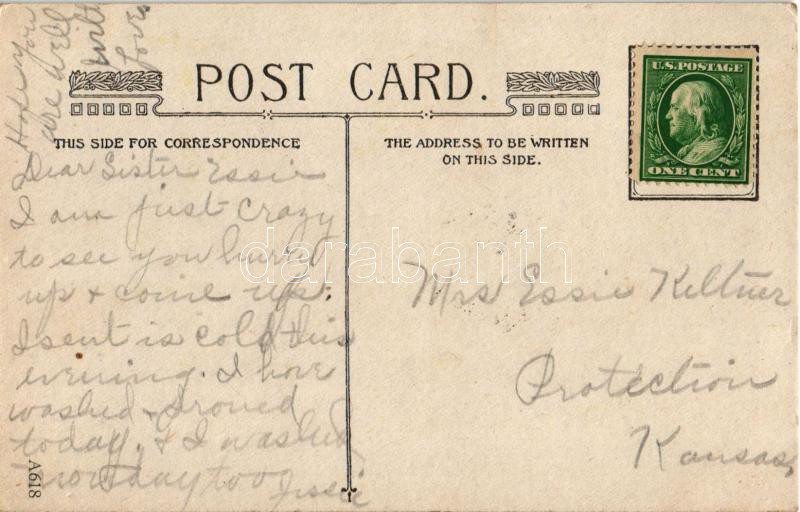 Hope you
are well
with
love.
POST CARD.
U.S. POSTAGE
ONE CENT
THIS SIDE FOR CORRESPONDENCE
THE ADDRESS TO BE WRITTEN
ON THIS SIDE.
Dear Sister Essie
I am just crazy
to see you hurry
up & come up.
Isent is cold this
evening. I have
washed & Ironed
today. & I washed
day too
Jessie
Mrs Essie Keltner
Protection
Kansas,
A618
darabanth